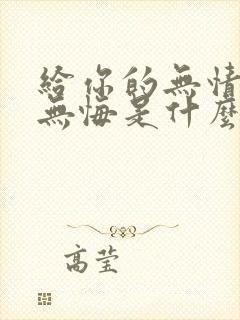 給你的無情
無悔是什麼
高莹